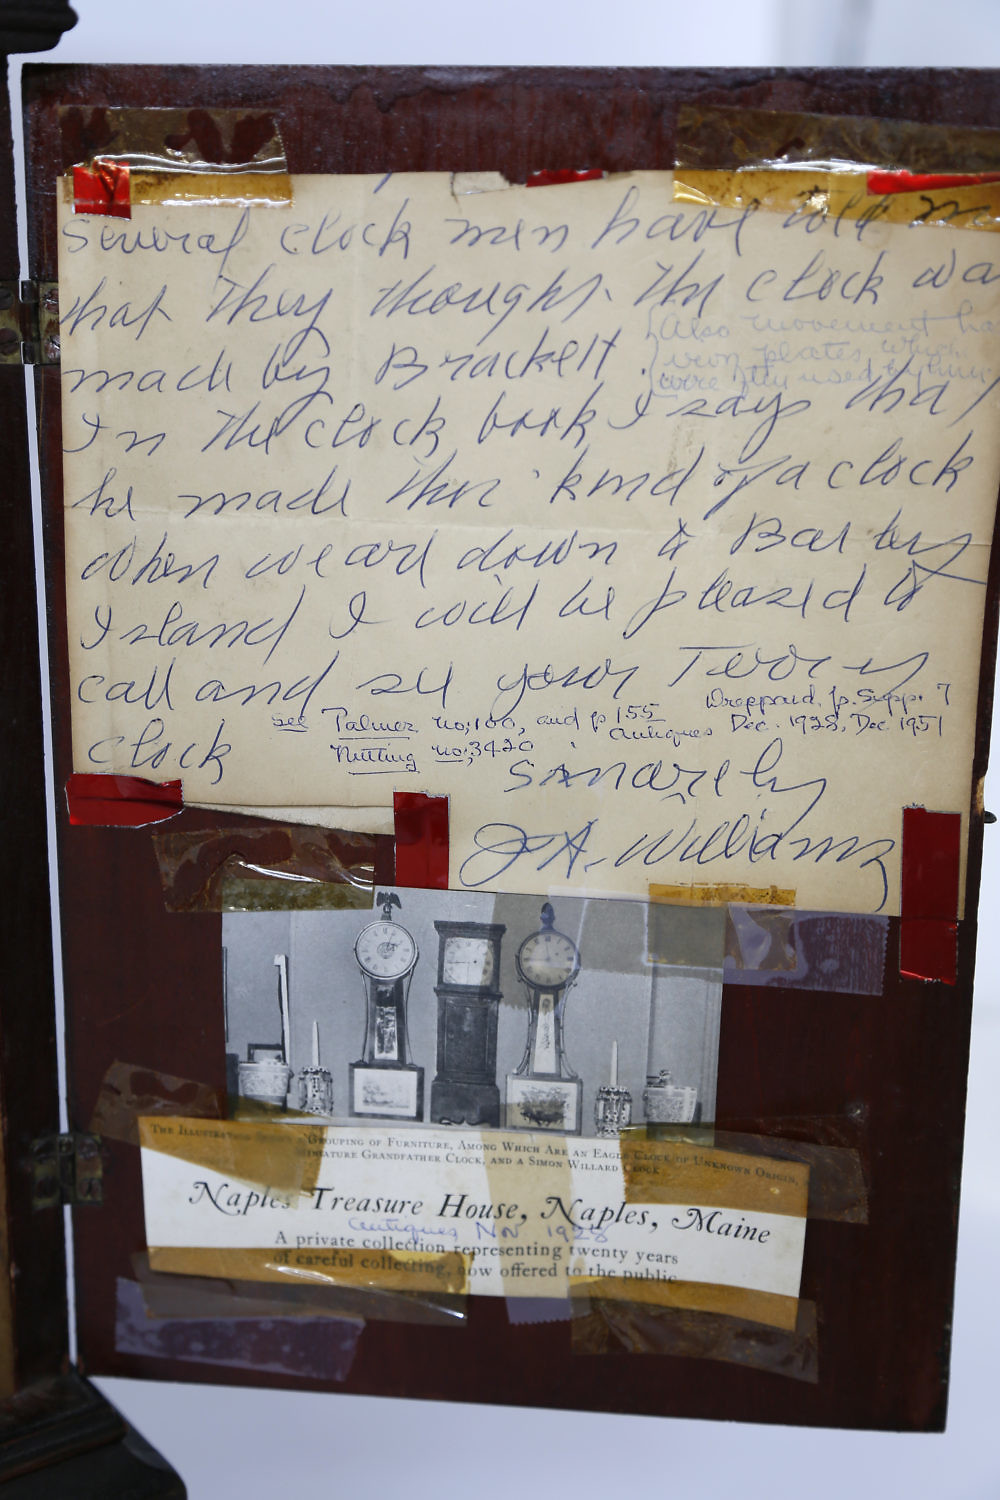 Several clock men have told m
that they thought the clock wa
made by Brackett.
(Also movement ha
iron plates, which
were often used by him)
In the clock book I says that
he made this kind of a clock
When we are down to Bartery
Island I will be pleased to
call and see your Terry
clock
see Palmer no; 100, and p 155
Nutting no; 3420
Dreppard, p. Supp. 7
Antiques Dec. 1928, Dec 1951
Sincerely
J A. Williams
The Illustration Grouping of Furniture, Among Which Are an Eagle Clock of Unknown Origin,
Miniature Grandfather Clock, and a Simon Willard Clock
Naples Treasure House, Naples, Maine
Antiques Nov 1928
A private collection representing twenty years
of careful collecting, now offered to the public